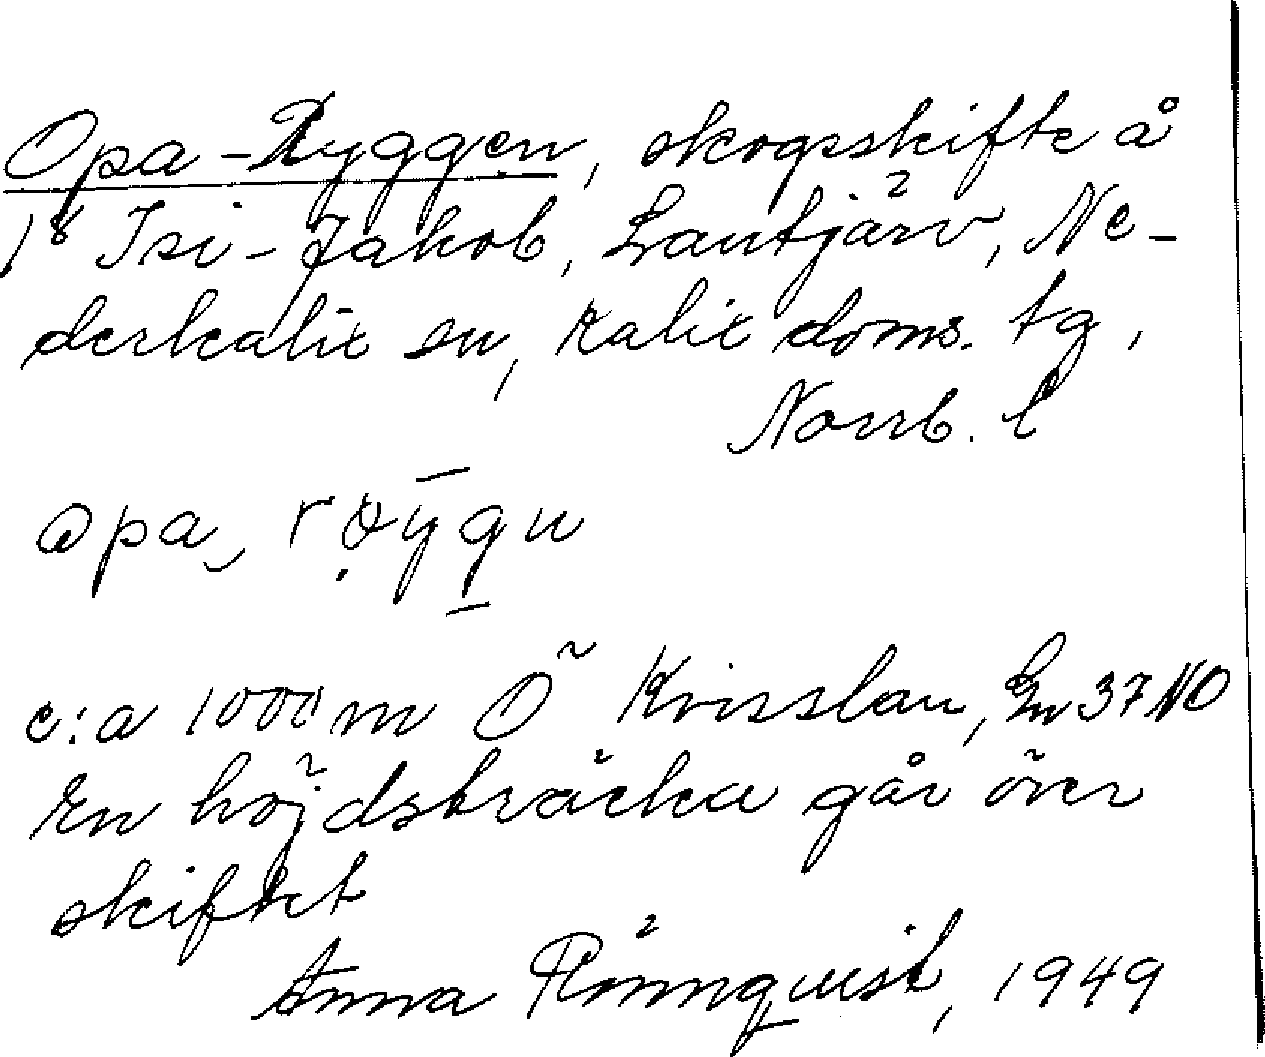 Opa-Ryggen, skogsskifte å
1⁸ Isi-Jakob, Lantjärv, Ne-
derkalix sn, Kalix doms. tg,
Norrb. l
opa, røygn
c:a 1000 m Ö Kvisslan, Gn 37 NO
En höjdsträcka går över
skiftet
Anna Rönnquist, 1949